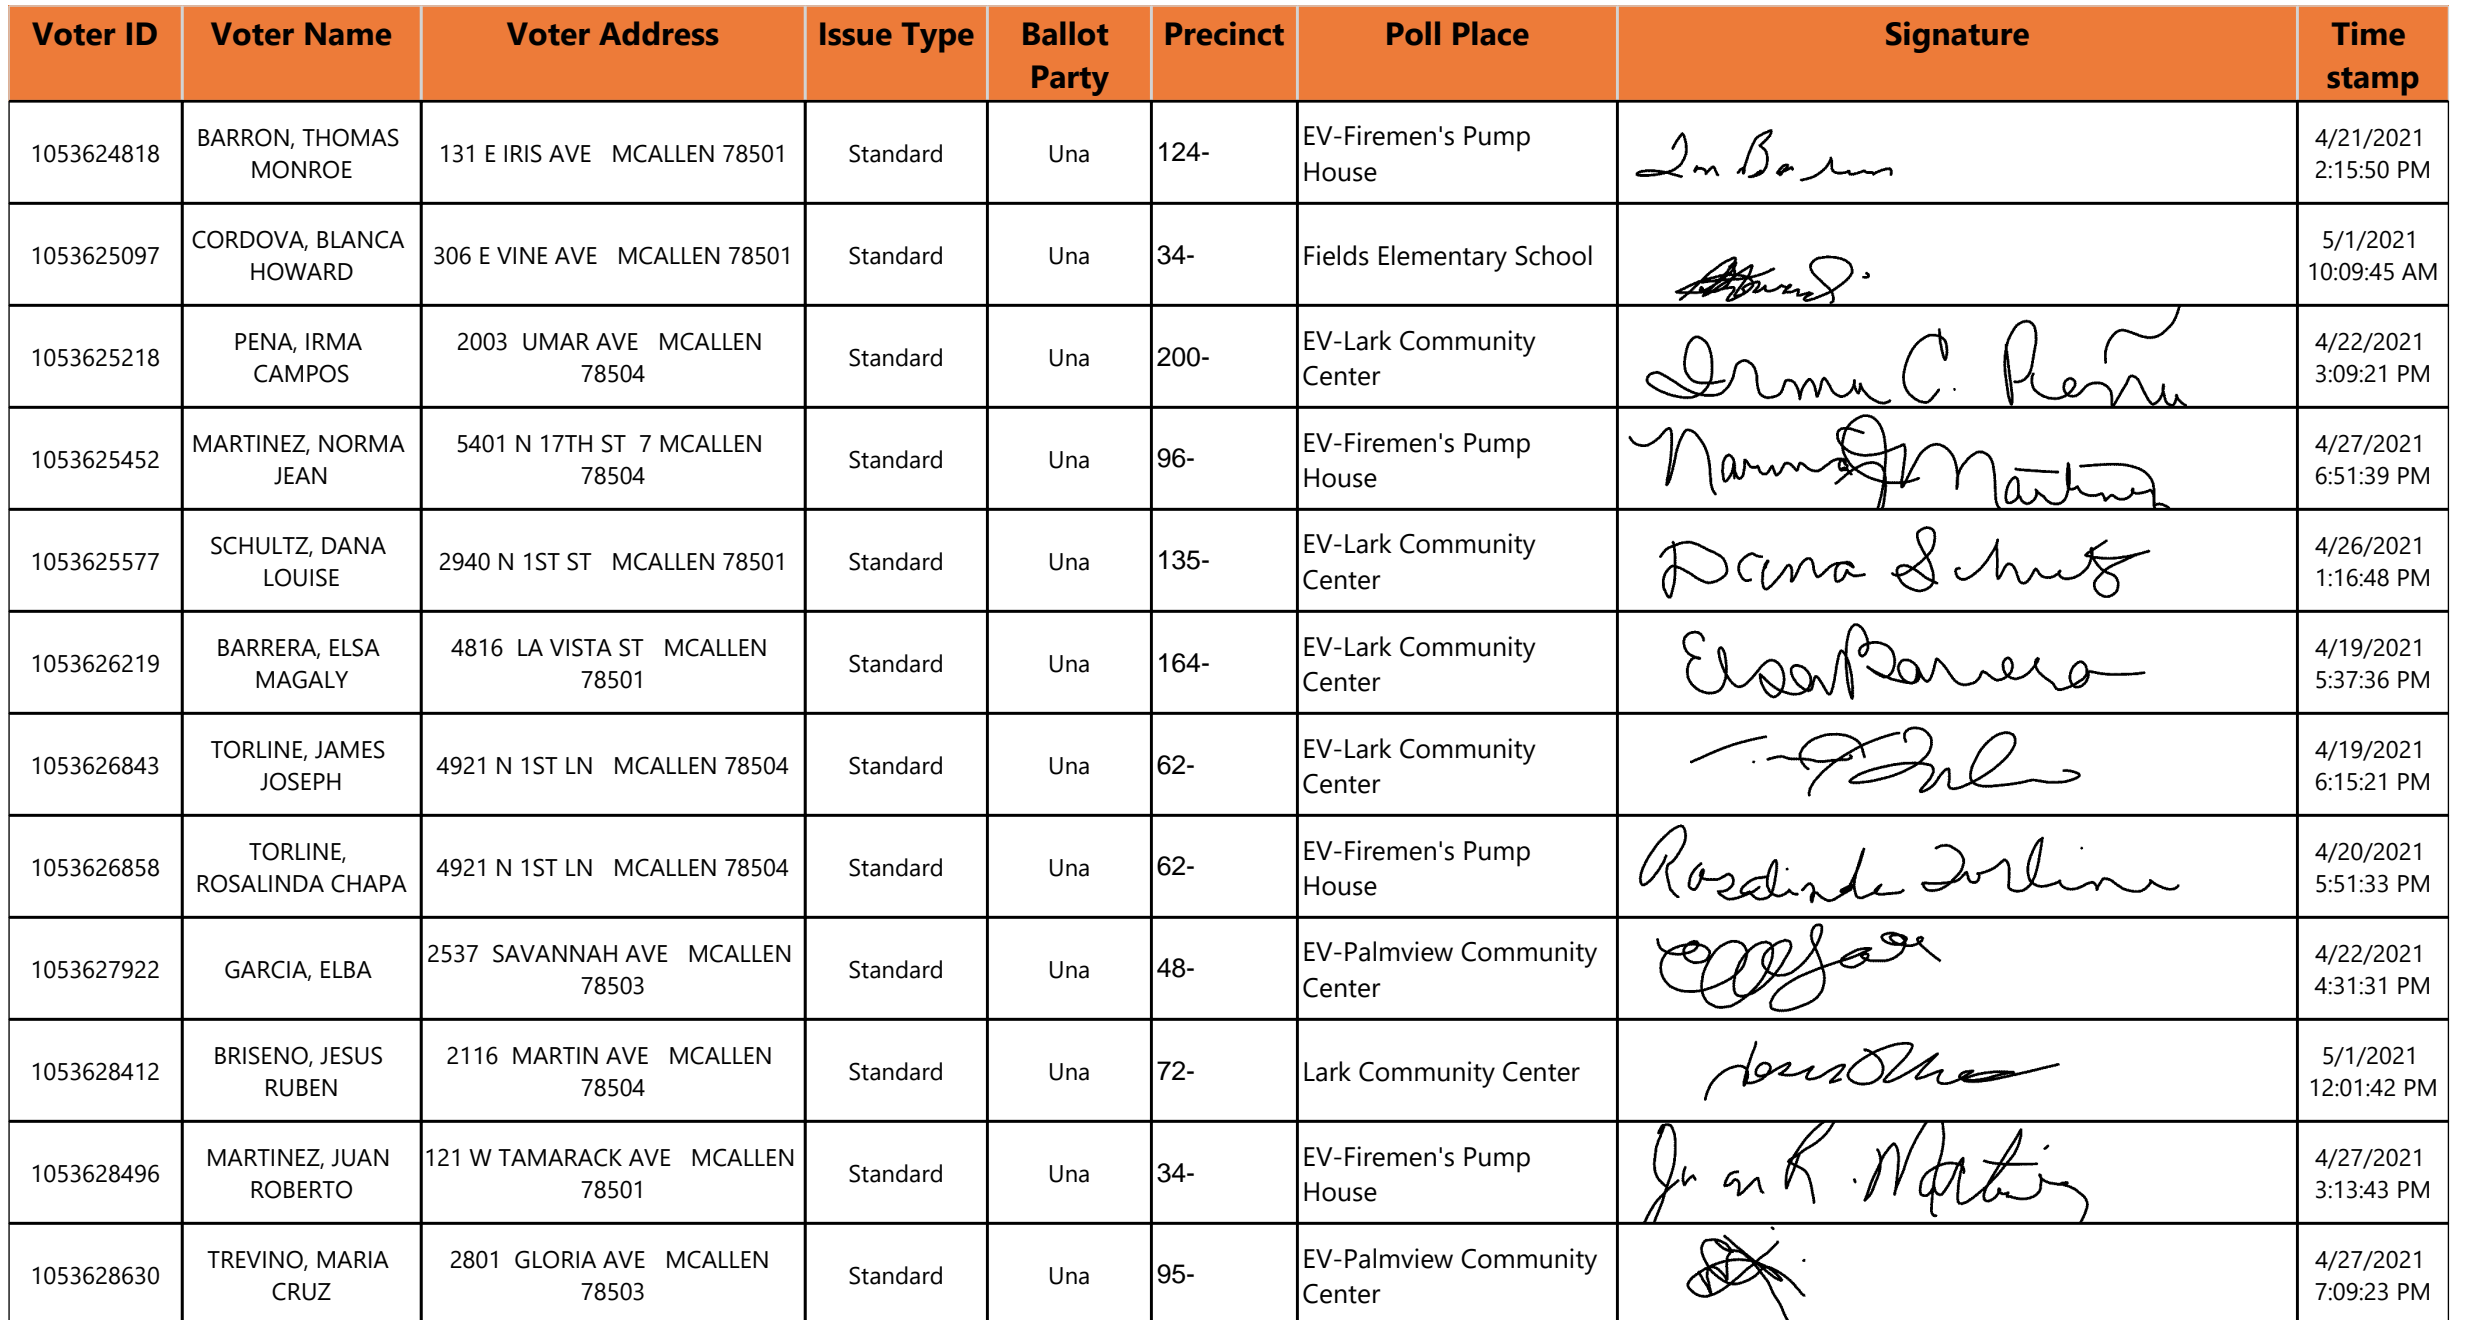 Voter ID Voter Name Voter Address Issue Type Ballot Party Precinct Poll Place Signature Time stamp
1053624818 BARRON, THOMAS MONROE 131 E IRIS AVE MCALLEN 78501 Standard Una 124- EV-Firemen's Pump House 4/21/2021 2:15:50 PM
1053625097 CORDOVA, BLANCA HOWARD 306 E VINE AVE MCALLEN 78501 Standard Una 34- Fields Elementary School 5/1/2021 10:09:45 AM
1053625218 PENA, IRMA CAMPOS 2003 UMAR AVE MCALLEN 78504 Standard Una 200- EV-Lark Community Center Irma C. Peña 4/22/2021 3:09:21 PM
1053625452 MARTINEZ, NORMA JEAN 5401 N 17TH ST 7 MCALLEN 78504 Standard Una 96- EV-Firemen's Pump House Norma J Martinez 4/27/2021 6:51:39 PM
1053625577 SCHULTZ, DANA LOUISE 2940 N 1ST ST MCALLEN 78501 Standard Una 135- EV-Lark Community Center Dana Schultz 4/26/2021 1:16:48 PM
1053626219 BARRERA, ELSA MAGALY 4816 LA VISTA ST MCALLEN 78501 Standard Una 164- EV-Lark Community Center Elsa Barrera 4/19/2021 5:37:36 PM
1053626843 TORLINE, JAMES JOSEPH 4921 N 1ST LN MCALLEN 78504 Standard Una 62- EV-Lark Community Center 4/19/2021 6:15:21 PM
1053626858 TORLINE, ROSALINDA CHAPA 4921 N 1ST LN MCALLEN 78504 Standard Una 62- EV-Firemen's Pump House Rosalinda Torline 4/20/2021 5:51:33 PM
1053627922 GARCIA, ELBA 2537 SAVANNAH AVE MCALLEN 78503 Standard Una 48- EV-Palmview Community Center 4/22/2021 4:31:31 PM
1053628412 BRISENO, JESUS RUBEN 2116 MARTIN AVE MCALLEN 78504 Standard Una 72- Lark Community Center 5/1/2021 12:01:42 PM
1053628496 MARTINEZ, JUAN ROBERTO 121 W TAMARACK AVE MCALLEN 78501 Standard Una 34- EV-Firemen's Pump House Juan R. Martinez 4/27/2021 3:13:43 PM
1053628630 TREVINO, MARIA CRUZ 2801 GLORIA AVE MCALLEN 78503 Standard Una 95- EV-Palmview Community Center 4/27/2021 7:09:23 PM